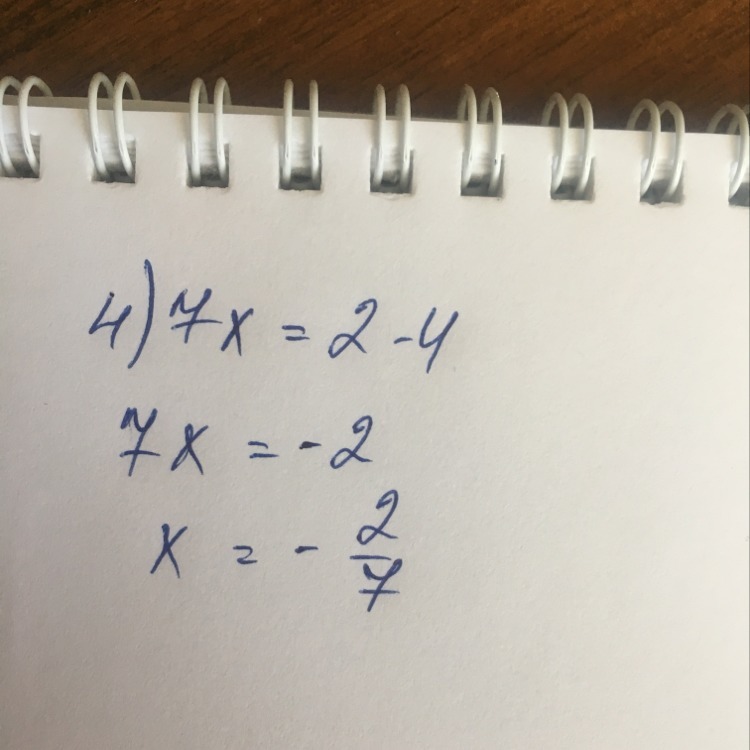 4) 7x = 2 - 4
7x = - 2
x = - 2/7